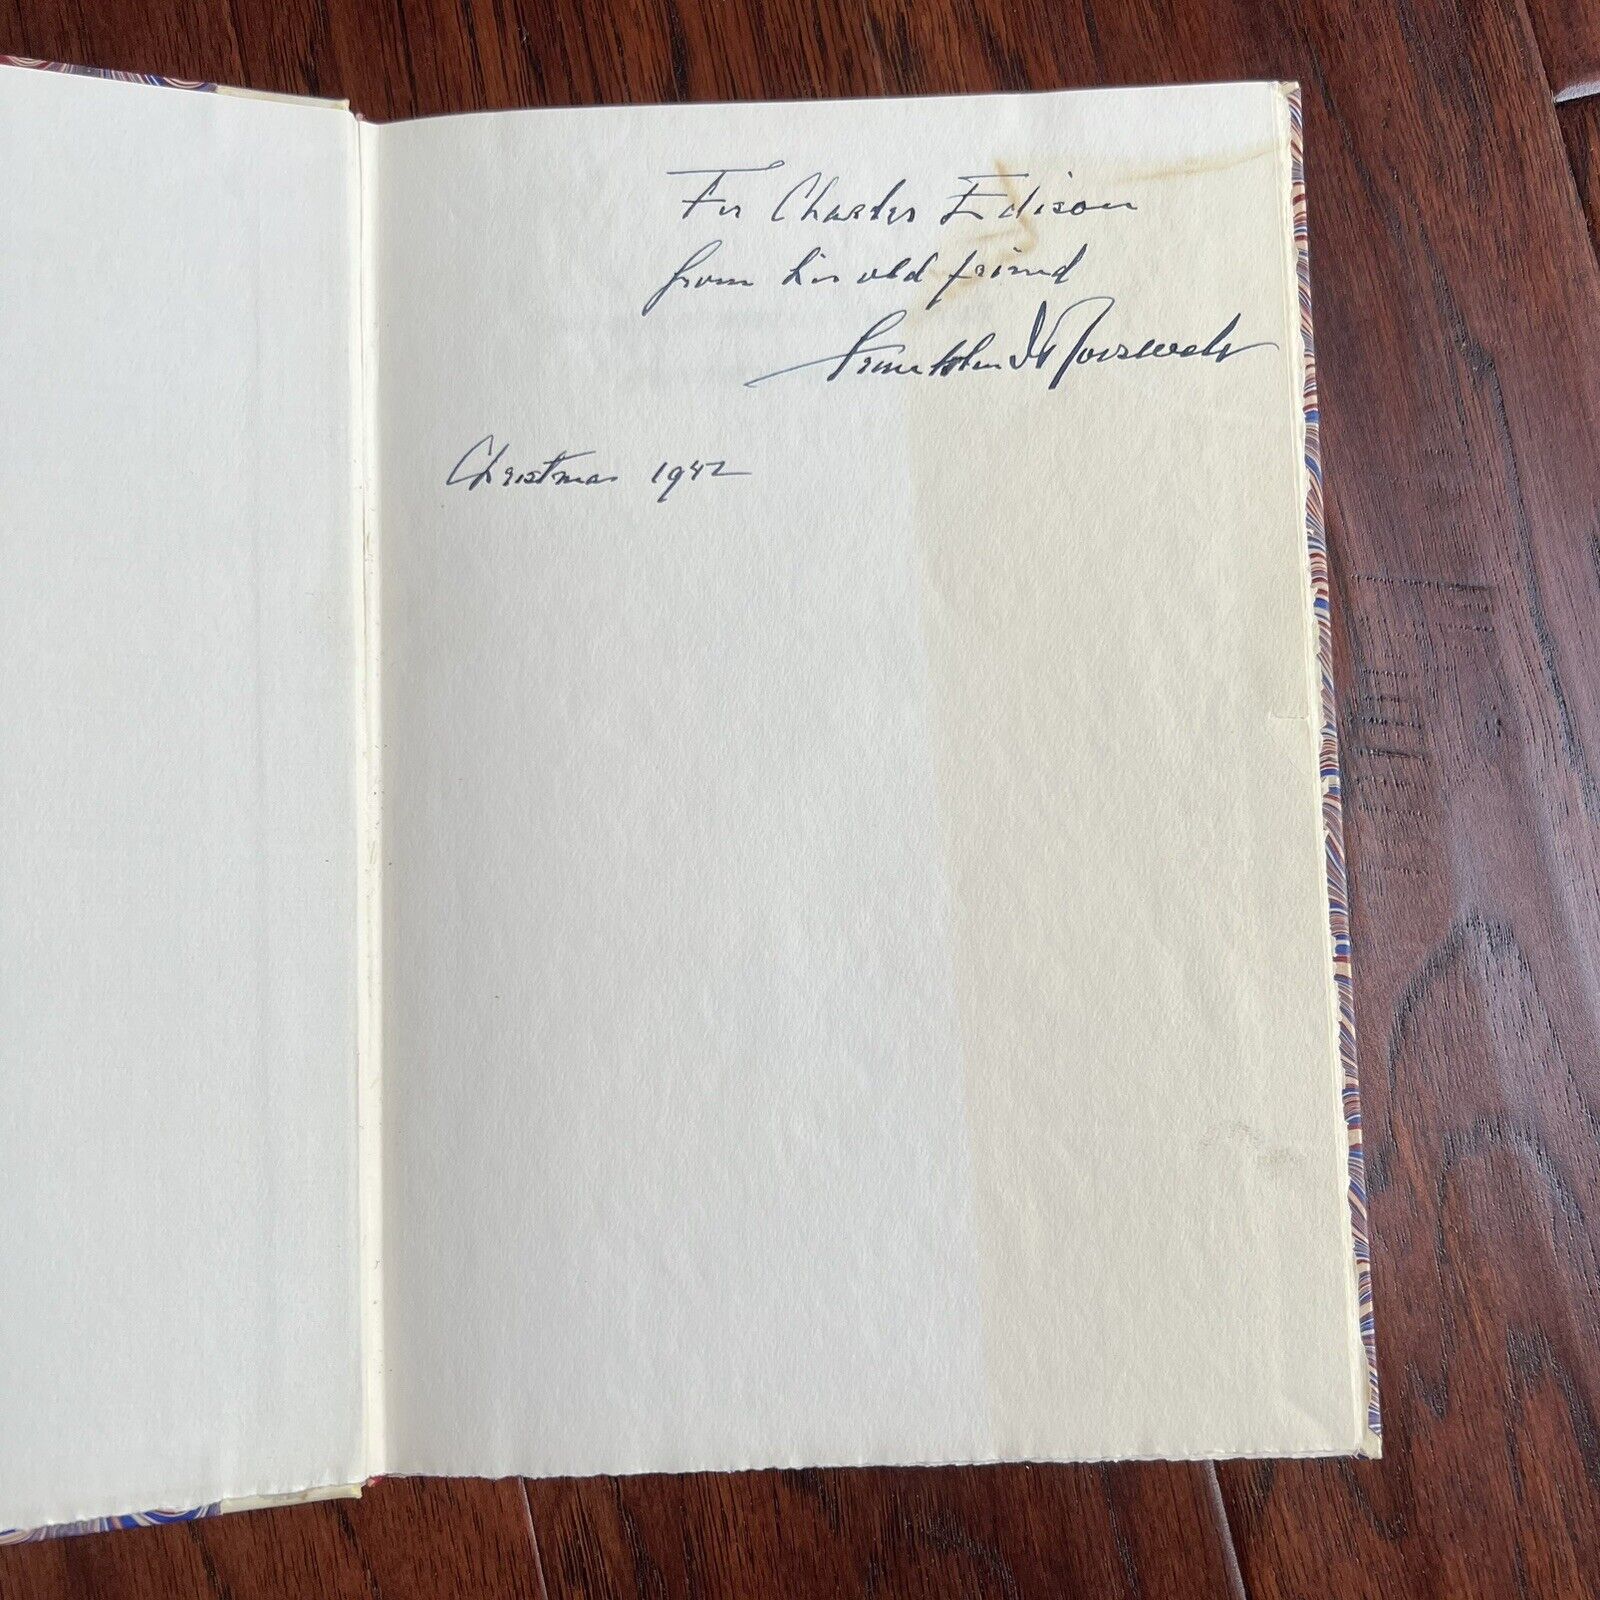 For Charles Edison
from his old friend
Franklin D Roosevelt
Christmas 1942